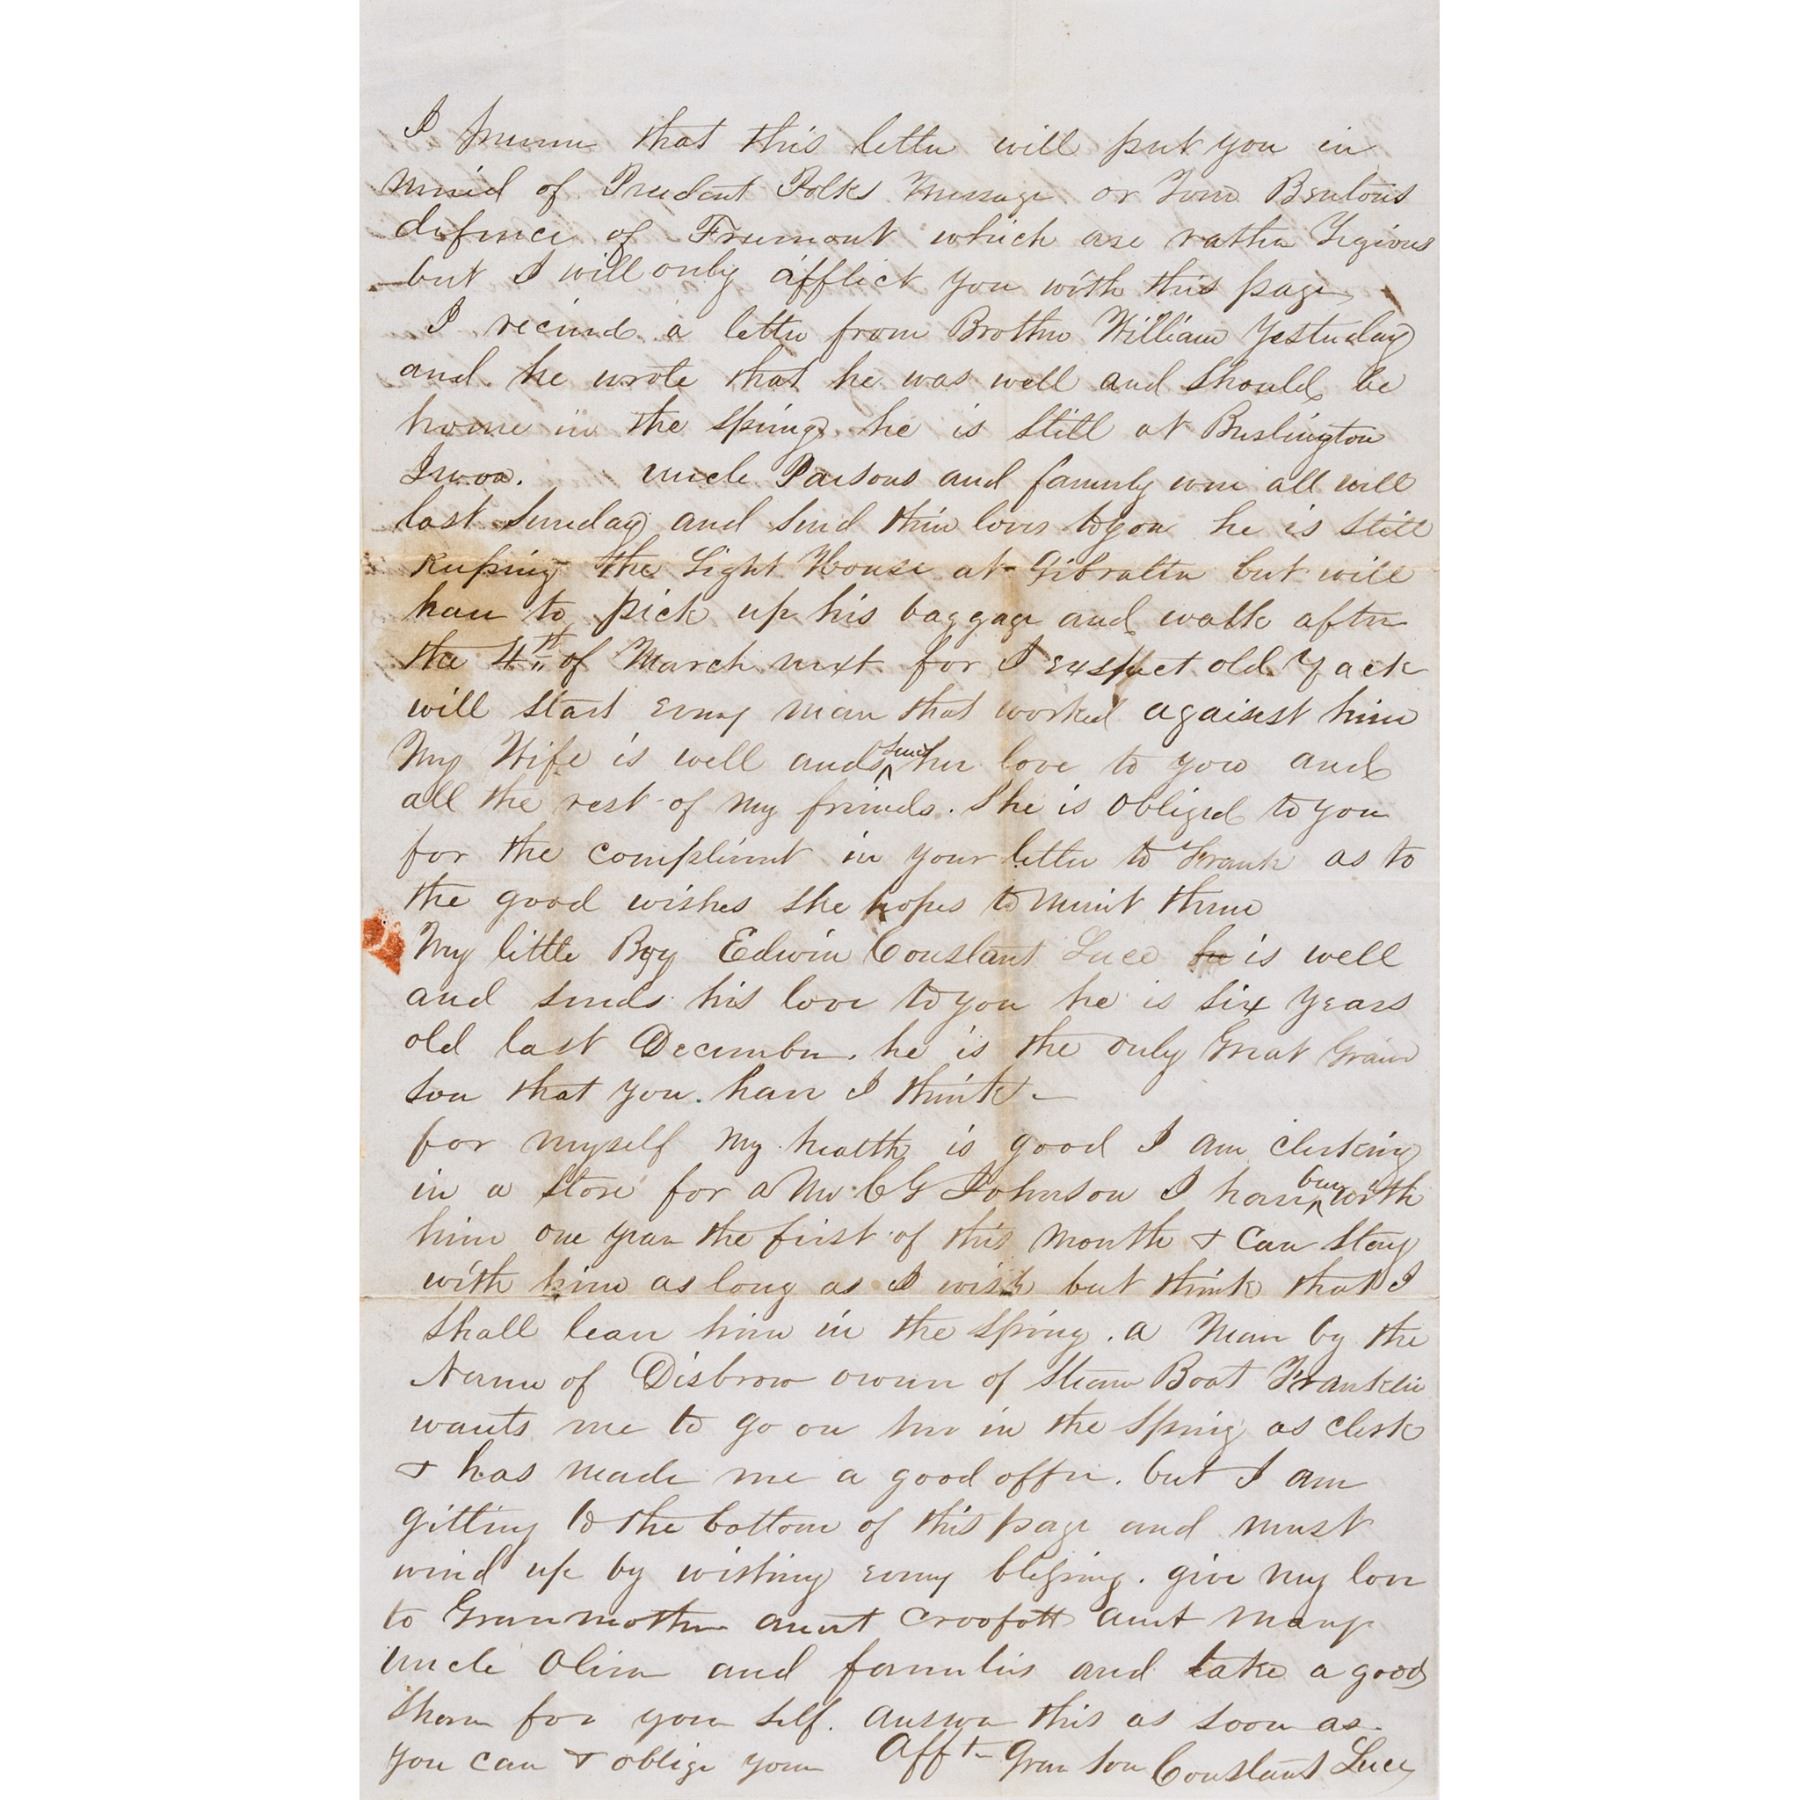 I presume that this letter will put you in
mind of President Polks Message or Tom Bentons
defence of Fremont which are rather
but I will only afflict you with this page
I recieved a letter from Brother William Yesterday
and he wrote that he was well and should be
home in the spring he is still at Burlington
Iwoa. uncle Parsons and family were all well
last Sunday and send their loves to you he is still
Keeping the Light House at Gibralter but will
have to pick up his baggage and walk after
the 4th of March next for I expect old Zack
will start every man that worked against him
My Wife is well and send her love to you and
all the rest of my friends. She is obliged to you
for the compliment in your letter to Frank as to
the good wishes she hopes to merit them
My little Boy Edwin Constant Luce he is well
and sends his love to you he is six years
old last December. he is the only Great Gran
son that you have I think —
for myself my health is good I am clerking
in a store for a Mr C G Johnson I have been with
him one year the first of this month & can stay
with him as long as I wish but think that I
shall leave him in the spring. a Man by the
Name of Disbrow owner of Steam Boat Franklin
wants me to go on her in the spring as clerk
& has made me a good offer. but I am
gitting to the bottom of this page and must
wind up by wishing every blessing. give my love
to Granmother aunt Croofott aunt Mary
uncle Oliver and families and take a good
share for your self. answer this as soon as
you can & oblige your Afft Gran son Constant Luce